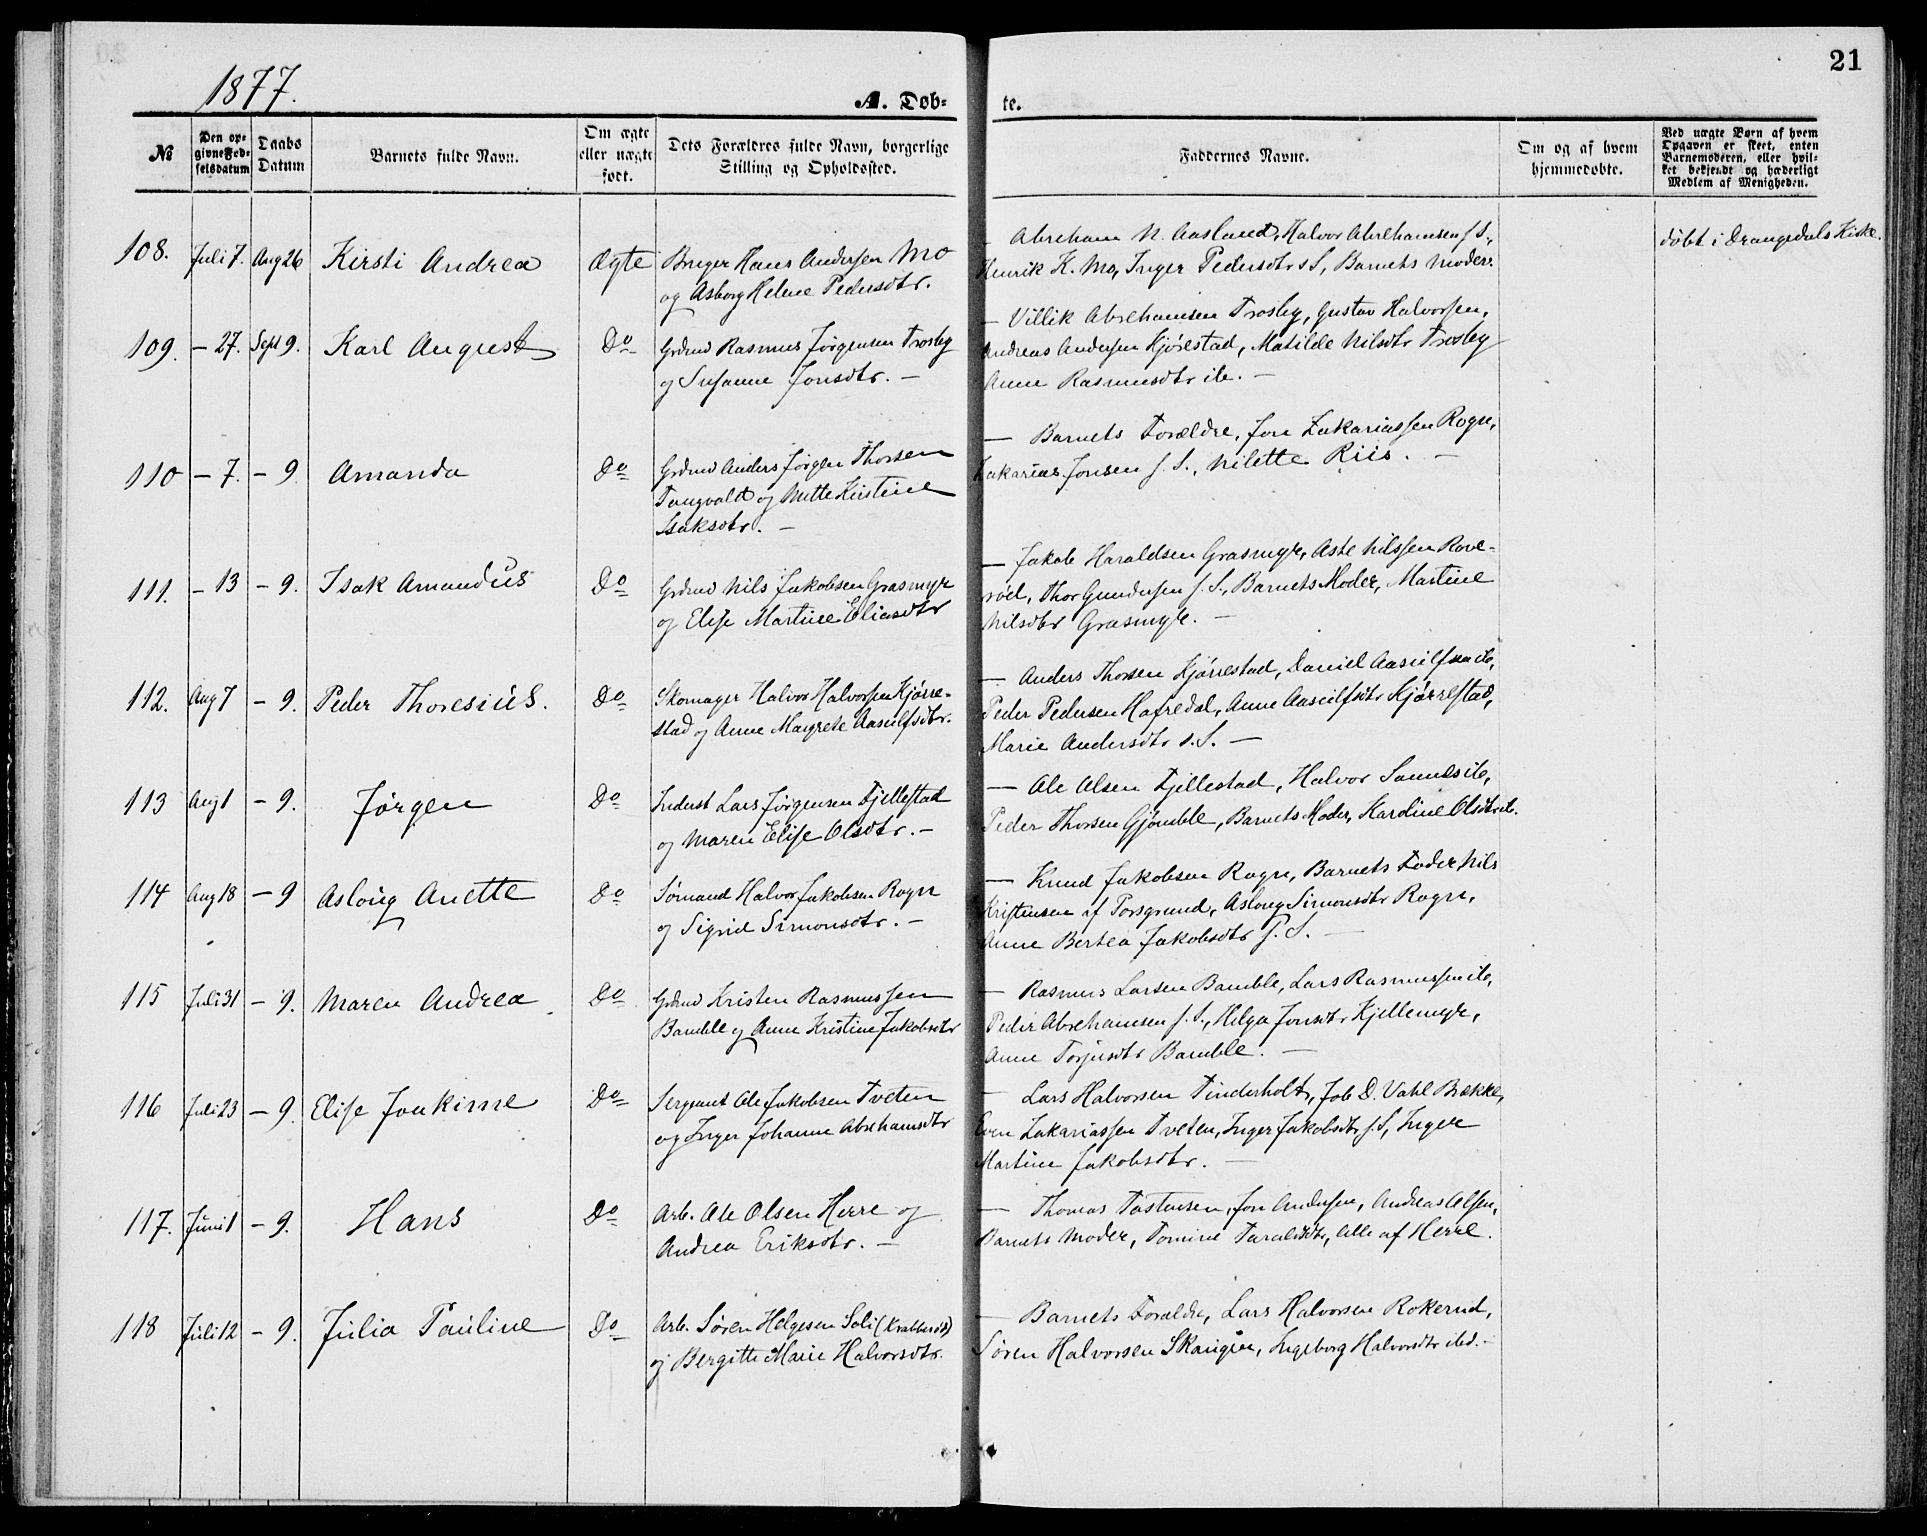 1877.
A. Døb-
te.
21
№
Den op-
givne Fød-
selsdatum
Daabs
Datum
Barnets fulde Navn.
Om ægte
eller uægte
født.
Dets Forældres fulde Navn, borgerlige
Stilling og Opholdssted.
Faddernes Navne.
Om og af hvem
hjemmedøbte.
Ved uægte Børn af hvem
Opgaven er skeet, enten
Barnemoderen, eller hvil-
ket bekjendt og hæderligt
Medlem af Menigheden.
108. Juli 7. Aug 26 Kirsti Andrea Ægte Bruger Hans Andersen Mo
og Asborg Helene Pedersdtr.
– Abreham N. Aasland, Halvor Abrehamsen f S.,
Henrik K. Mo, Inger Pedersdtr s S, Barnets Moder.
døbt i Drangedals Kirke.
109. – 27. Sept 9. Karl August Do Grdmd Rasmus Jørgensen Trosby
og Susanne Jonsdtr. –
– Villik Abrehamsen Trosby, Gustav Halvorsen,
Andreas Andersen Kjørestad, Matilde Nilsdtr Trosby
Anne Rasmusdtr ib. –
110 – 7. – 9. Amanda Do Grdmd Anders Jørgen Thorsen
Tangvald og Mette Kirstine
Isaksdtr. –
– Barnets Forældre, Jon Zakariassen Rogn,
Zakarias Jonsen f. S., Nilette Riis. –
111. – 13 – 9. Isak Amandus Do Grdmd Nils Jakobsen Grasmyr
og Elise Martine Eliasdtr
– Jakob Haraldsen Grasmyr, Aste Nilssen Rove-
rød, Thor Gundersen f. S., Barnets Moder, Martine
Nilsdtr Grasmyr. –
112. Aug 7 – 9. Peder Thoresius. Do Skomager Halvor Halvorsen Kjørre-
stad og Anne Margrete Aasulfsdtr.
– Anders Thorsen Kjørrestad, Daniel Aasulfsen ib,
Peder Pedersen Hafredal, Anne Aasulfsdtr Kjørrestad,
Marie Andersdtr s. S. –
113 Aug 1 – 9. Jørgen Do Inderst Lars Jørgensen Fjellestad
og Maren Elise Olsdtr. –
– Ole Olsen Fjellestad, Halvor Samuels ib,
Peder Thorsen Gjømble, Barnets Moder, Karoline Olsdtr ib.
114 Aug 18 – 9 Aslaug Anette Do Sømand Halvor Jakobsen Rogn
og Sigrid Simonsdtr. –
– Knud Jakobsen Rogn, Barnets Fader, Nils
Kristensen af Porsgrund, Aslaug Simonsdtr Rogn,
Anne Bertea Jakobsdtr f. S. –
115 Juli 31 – 9. Maren Andrea Do Grdmd Kristen Rasmussen
Bamble og Anne Kristine Jakobsdtr
– Rasmus Larsen Bamble, Lars Rasmussen ib,
Peder Abrehamsen f. S., Helga Jonsdtr Kjellemyr,
Anne Torjusdtr Bamble. –
116 Juli 23 – 9. Elise Joakime Do Sergeant Ole Jakobsen Tveten
og Inger Johanne Abrehamsdtr
– Lars Halvorsen Tinderholt, Job D. Vahl Bække,
Even Zakariassen Tveten, Inger Jakobsdtr f. S, Inger
Martine Jakobsdtr. –
117. Juni 1 – 9. Hans Do Arb. Ole Olsen Herre og
Andrea Eriksdtr. –
– Thomas Tostensen, Jon Andersen, Andreas Olsen,
Barnets Moder, Tomine Taralsdtr, alle af Herre.
118 Juli 12 – 9. Julia Pauline Do Arb. Søren Helgesen Soli (Krabberød)
og Bergitte Marie Halvorsdtr.
– Barnets Forældre, Lars Halvorsen Rokerud,
Søren Halvorsen Skaugen, Ingeborg Halvorsdtr ibd. –